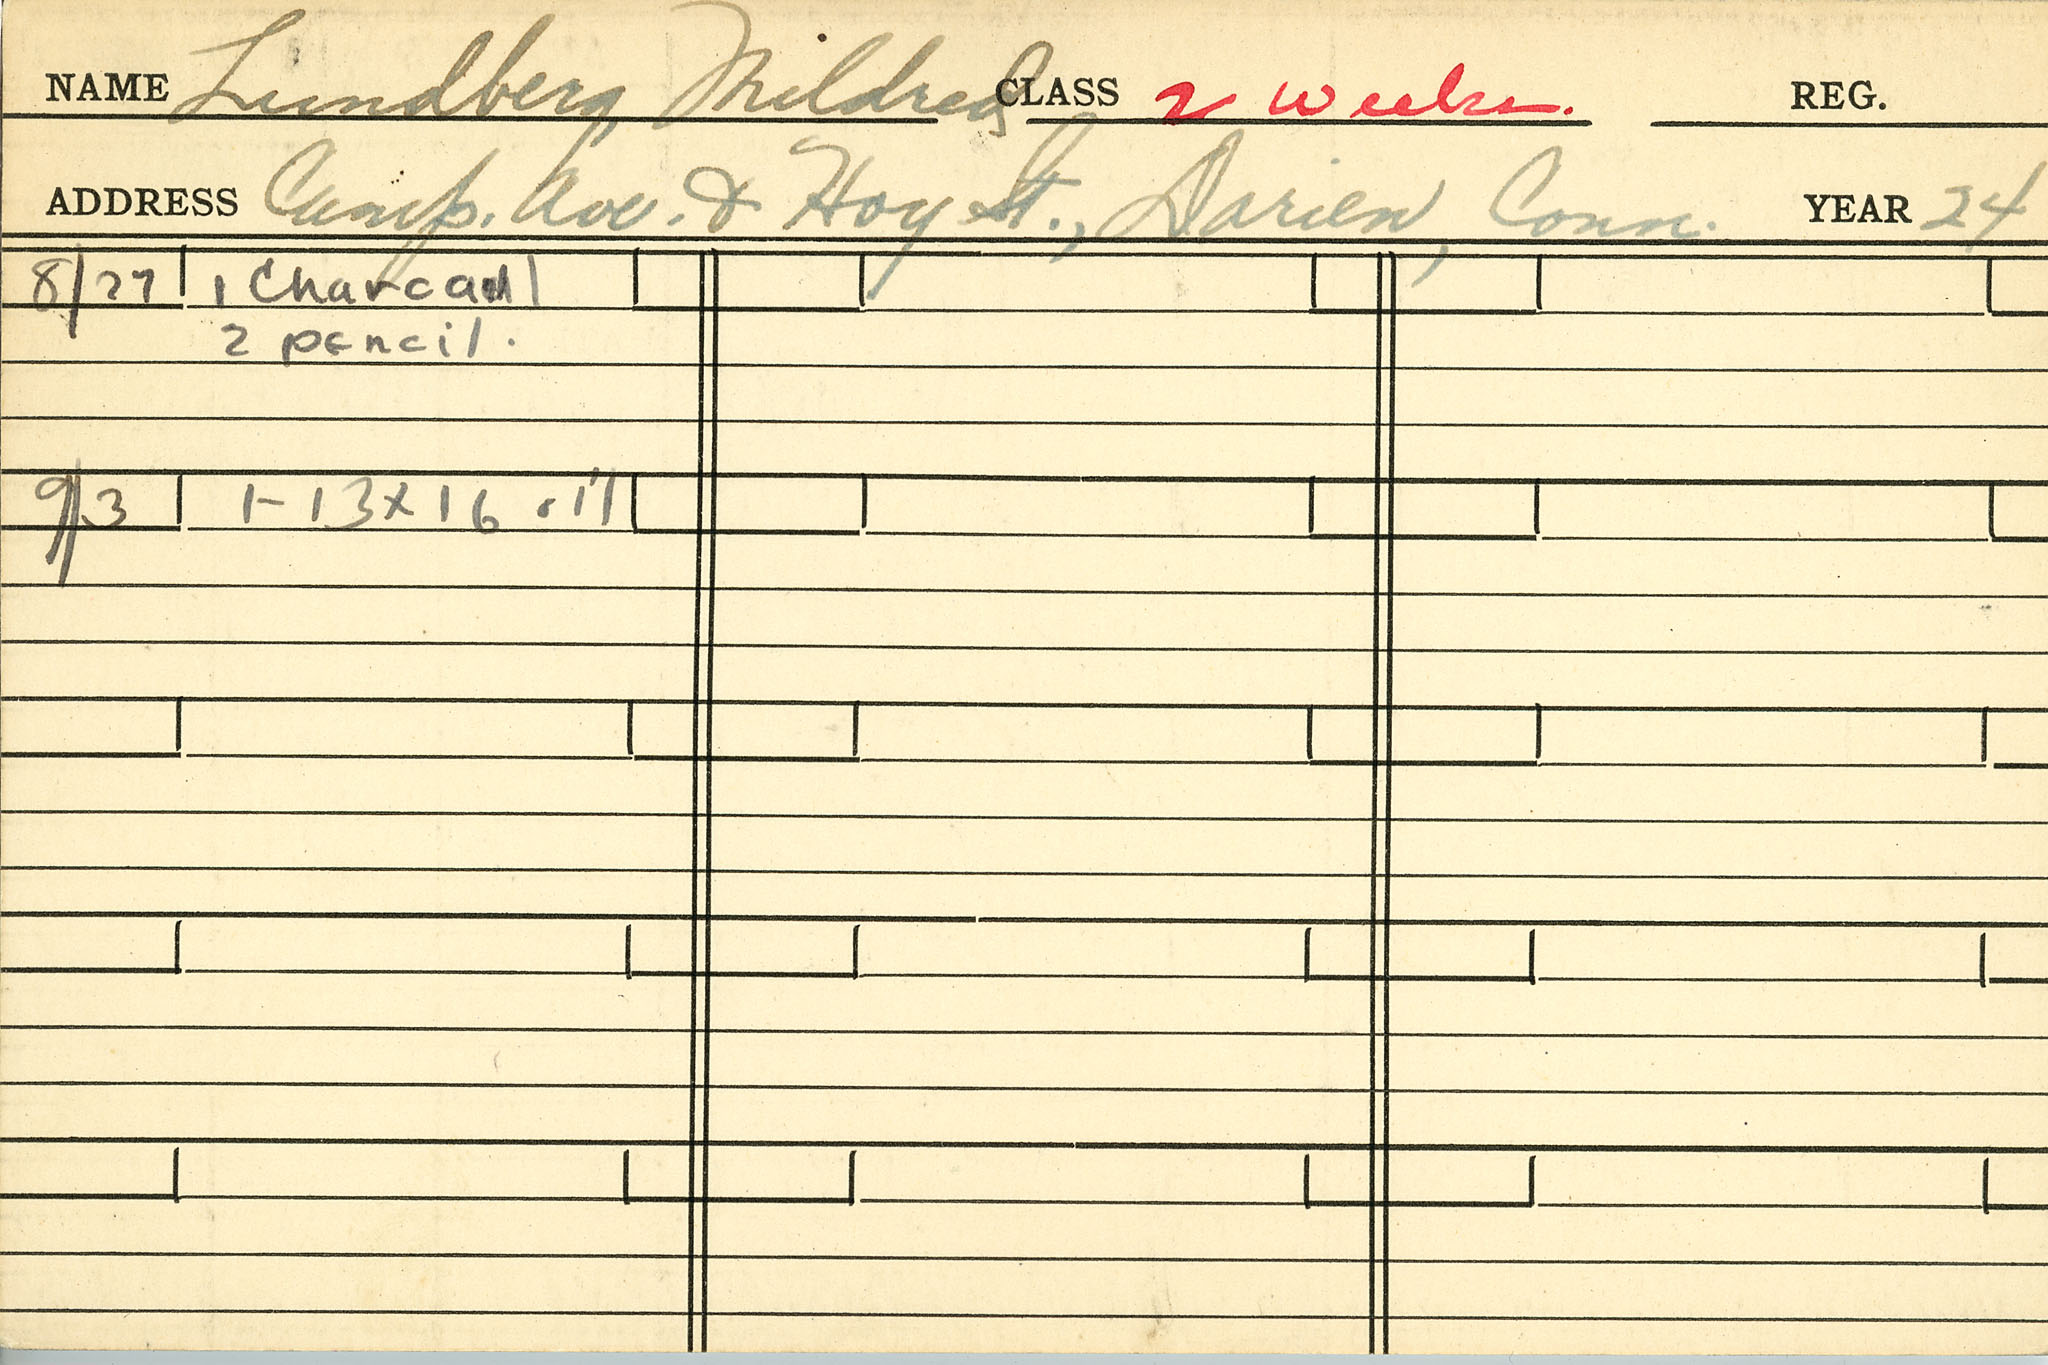 NAME Lundberg Mildred CLASS 2 weeks. REG.
ADDRESS Camp. Ave. & Hoy St., Darien, Conn. YEAR 24
8/27 1 Charcoal
2 pencil.
9/3 1-13x16 oil